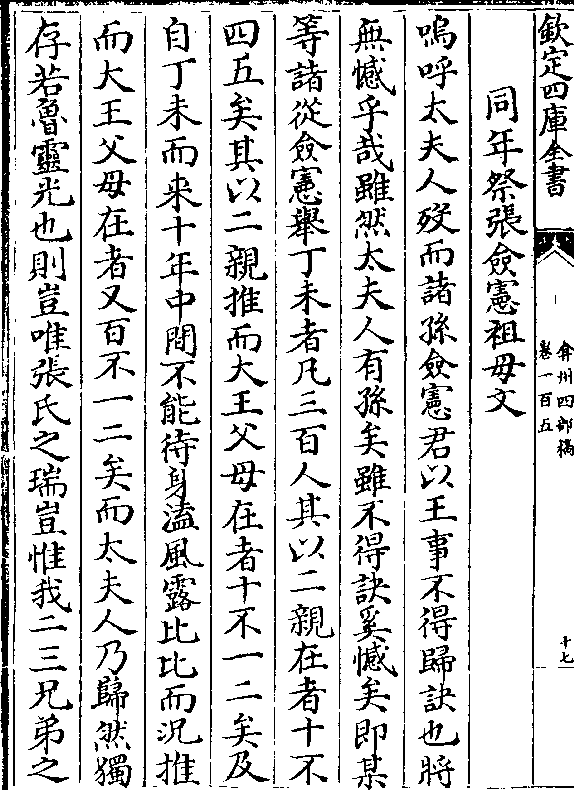 欽定四庫全書
弇州四部稿
卷一百五
十七
同年祭張僉憲祖母文
嗚呼太夫人歿而諸孫僉憲君以王事不得歸訣也將
無憾乎哉雖然太夫人有孫矣雖不得訣奚憾矣即某
等諸從僉憲舉丁未者凡三百人其以二親在者十不
四五矣其以二親推而大王父母在者十不一二矣及
自丁未而来十年中間不能待身溘風露比比而況推
而大王父母在者又百不一二矣而太夫人乃歸然獨
存若魯靈光也則豈唯張氏之瑞豈惟我二三兄弟之